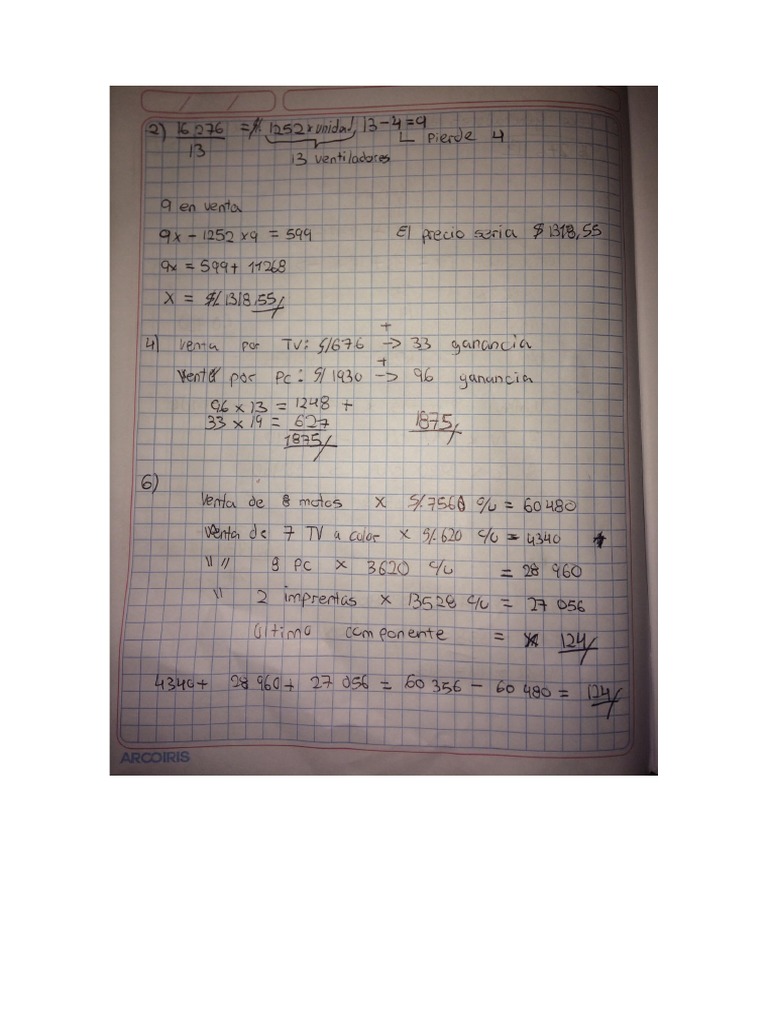 2) 16 276 = S/. 1252 x unidad, 13 - 4 = 9
13 └ pierde 4
13 ventiladores
9 en venta
9x - 1252 x 9 = 599 El precio seria $ 1318,55
9x = 599 + 11268
X = S/ 1318,55/
4) venta por TV: S/676 +-> 33 ganancia
venta por PC: S/ 1930 +-> 96 ganancia
96 x 13 = 1248 +
33 x 19 = 627 1875/
1875/
6)
venta de 8 motos x S/.7560 c/u = 60 480
venta de 7 TV a color x S/.620 c/u = 4340
" " 8 PC x 3620 c/u = 28 960
" 2 imprentas x 13528 c/u = 27 056
último componente = 124/
4340 + 28 960 + 27 056 = 60 356 - 60 480 = 124/
ARCOIRIS